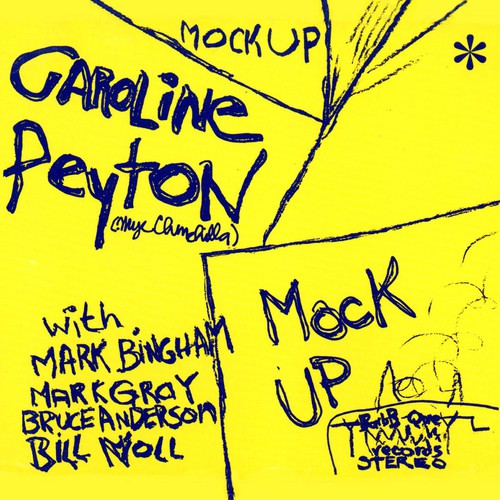 MOCK UP
*
CAROLINE
PEYTON
with
MARK BINGHAM
MARK GRAY
BRUCE ANDERSON
BILL NOLL
MOCK
UP
BarB-Que
records
STEREO